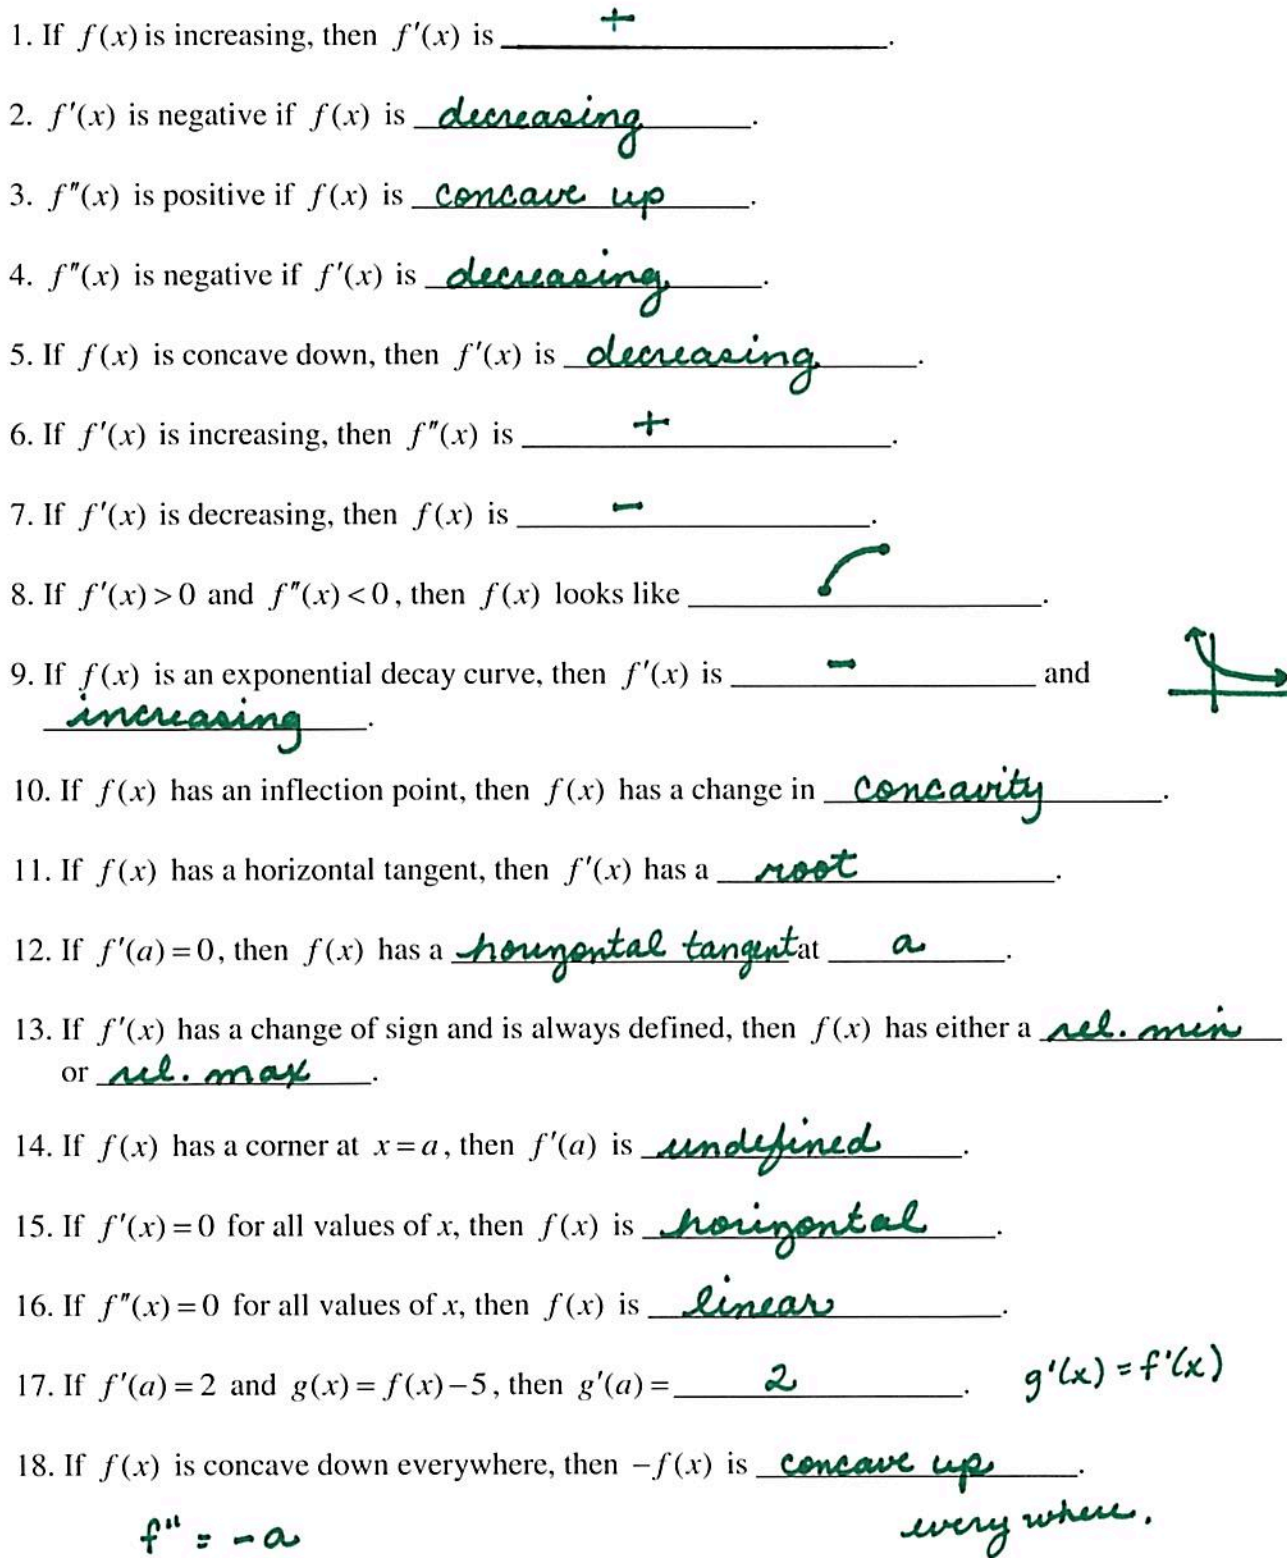 1. If f(x) is increasing, then f'(x) is + .
2. f'(x) is negative if f(x) is decreasing .
3. f"(x) is positive if f(x) is concave up .
4. f"(x) is negative if f'(x) is decreasing .
5. If f(x) is concave down, then f'(x) is decreasing .
6. If f'(x) is increasing, then f"(x) is + .
7. If f'(x) is decreasing, then f(x) is − .
8. If f'(x) > 0 and f"(x) < 0, then f(x) looks like .
9. If f(x) is an exponential decay curve, then f'(x) is − and
increasing .
10. If f(x) has an inflection point, then f(x) has a change in concavity .
11. If f(x) has a horizontal tangent, then f'(x) has a root .
12. If f'(a) = 0, then f(x) has a horizontal tangent at a .
13. If f'(x) has a change of sign and is always defined, then f(x) has either a rel. min
or rel. max .
14. If f(x) has a corner at x = a, then f'(a) is undefined .
15. If f'(x) = 0 for all values of x, then f(x) is horizontal .
16. If f"(x) = 0 for all values of x, then f(x) is linear .
17. If f'(a) = 2 and g(x) = f(x) − 5, then g'(a) = 2 . g'(x) = f'(x)
18. If f(x) is concave down everywhere, then −f(x) is concave up .
everywhere.
f" = −a